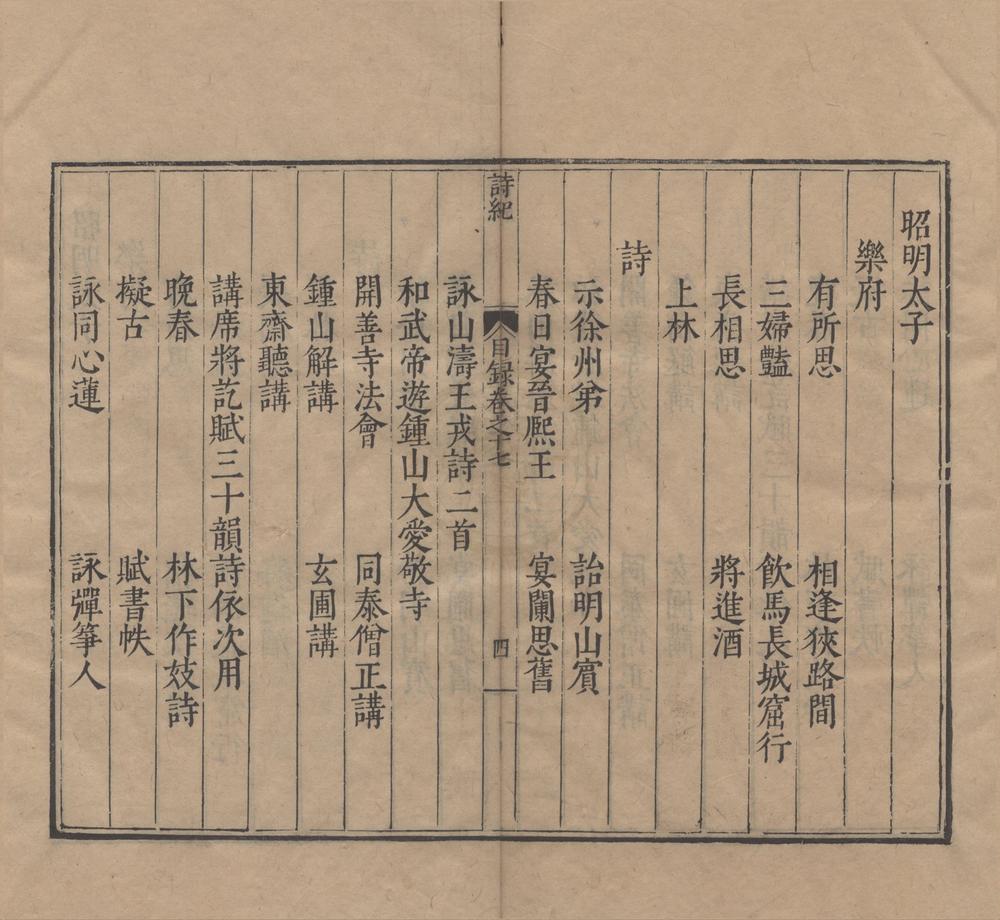 昭明太子
樂府
有所思　相逢狹路間
三婦豔　飲馬長城窟行
長相思　將進酒
上林
詩
示徐州弟　詒明山賓
春日宴晉熈王　宴闌思舊
詩紀　目録卷之十七　四
詠山濤王戎詩二首
和武帝遊鍾山大愛敬寺
開善寺法會　同泰僧正講
鍾山解講　玄圃講
東齋聽講
講席將訖賦三十韻詩依次用
晚春　林下作妓詩
擬古　賦書帙
詠同心蓮　詠彈箏人